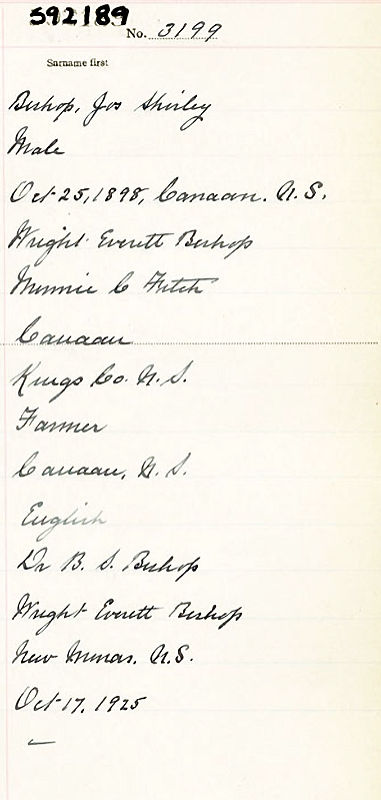 592189
No. 3199
Surname first
Bishop, Jos Shirley
Male
Oct 25, 1898, Canaan. N.S.
Wright Everett Bishop
Minnie C Fitch
Canaan
Kings Co. N.S.
Farmer
Canaan, N.S.
English
Dr B. S. Bishop
Wright Everett Bishop
New Minas. N.S.
Oct 17, 1925
—